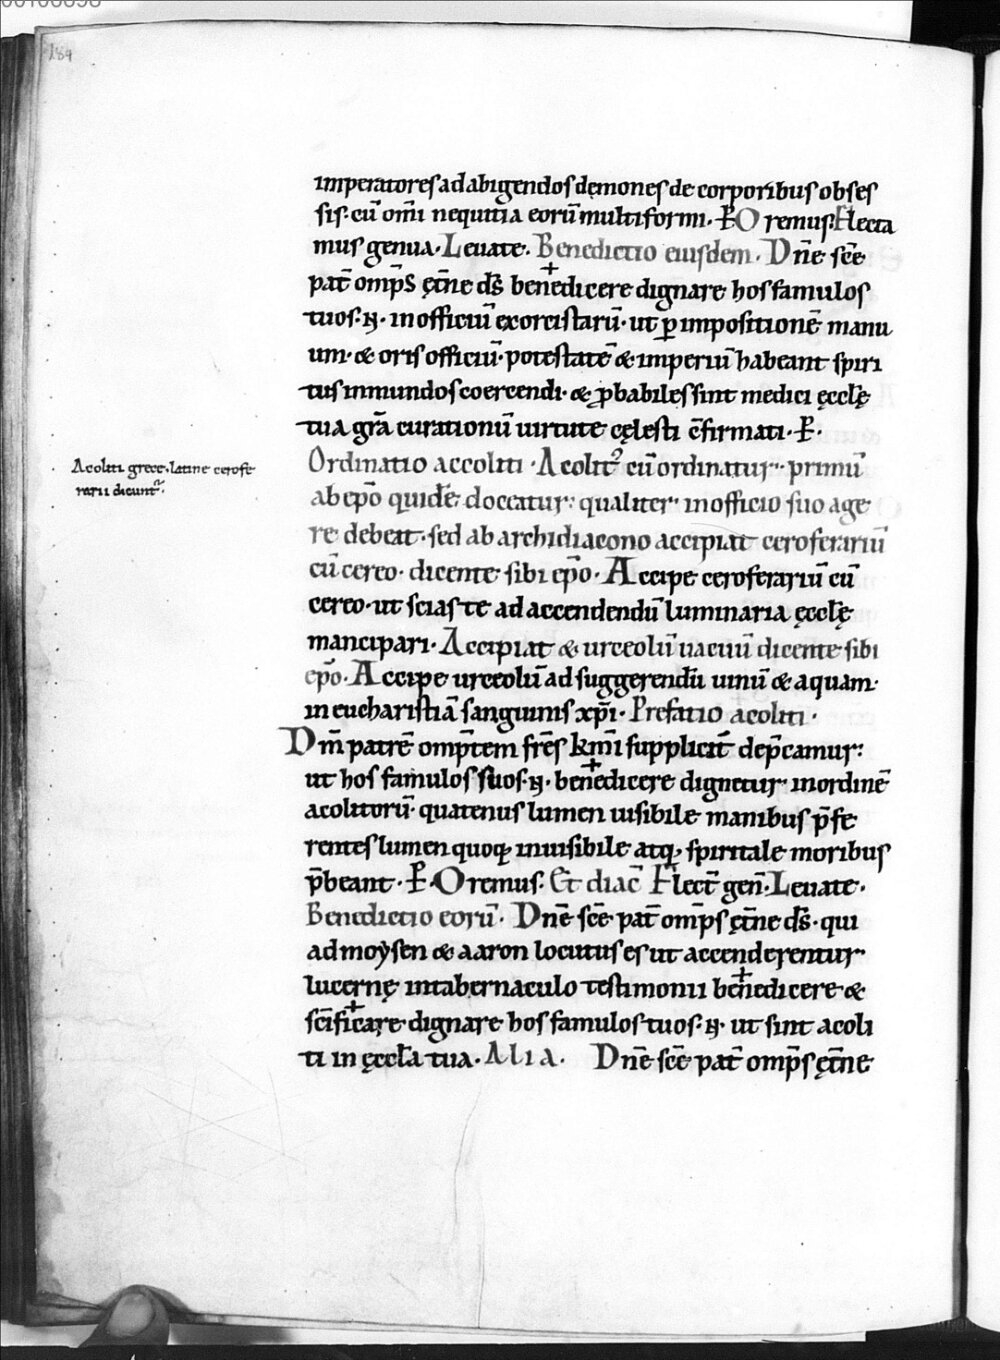 184
imperatores ad abigendos demones de corporibus obses
sis· cū om̄i nequitia eorū multiformi· P̄ Oremus Flecta
mus genua· Leuate· Benedictio eiusdem· Dn̄e sc̄e
pat̄ omp̄s ęt̄ne ds̄ bene+dicere dignare hos famulos
tuos· N̄· in officiū exorcistarū· ut ꝑ impositionē manu
um· & oris officiū· potestatē & imperiū habeant spiri
tus inmundos coercendi· & ꝓbabiles sint medici ęcclę
tua gr̄a curationū uirtute cęlesti c̄firmati· P̄·
Ordinatio accoliti · Acolit᷒ cū ordinatur· primū
ab ep̄o quidē doceatur· qualiter in officio suo age
re debeat· sed ab archidiacono accipiat ceroferariū
cū cereo· dicente sibi ep̄o· Accipe ceroferariū cū
Acoliti grece· latine cerofe
rarii dicunt᷑·
cereo· ut scias te ad accendendū luminaria ęcclę
mancipari· Accipiat & urceolū uacuū dicente sibi
ep̄o· Accipe urceolū ad suggerendū uinū & aquam·
in eucharistiā sanguinis xp̄i· Prefatio acoliti·
Dm̄ patrē omp̄tem fr̄es km̄i suppliciť dep̄camur:
ut hos famulos suos· N̄· bene+dicere dignetur in ordinē
acolitorū· quatenus lumen uisibile manibus p̄fe
rentes lumen quoq; inuisibile atq; spiritale moribus
p̄beant· P̄· Oremus· Et diac̄ Flect̄ gen̄· Leuate·
Benedictio eorū· Dn̄e sc̄e pat̄ omp̄s ęt̄ne ds̄· qui
ad moẏsen & aaron locutus es ut accenderentur
lucernę in tabernaculo testimonii bene+dicere &
sc̄ifi+care dignare hos famulos tuos· N̄· ut sint acoli
ti in ęccl̄a tua· Alia· Dn̄e sc̄e pat̄ omp̄s ęt̄ne